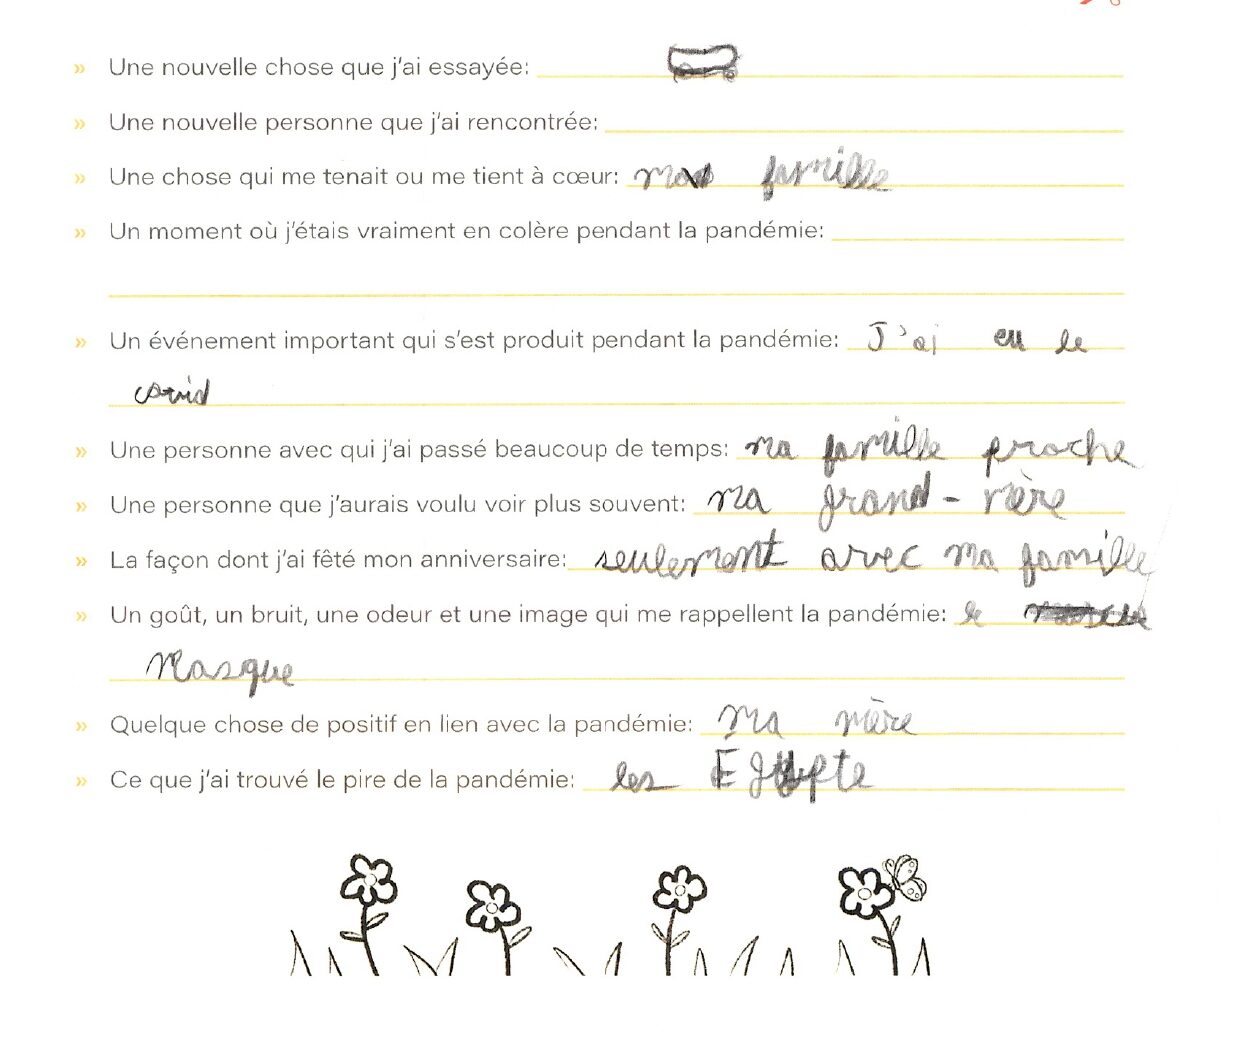 » Une nouvelle chose que j'ai essayée:
» Une nouvelle personne que j'ai rencontrée:
» Une chose qui me tenait ou me tient à cœur: ma famille
» Un moment où j'étais vraiment en colère pendant la pandémie:
» Un événement important qui s'est produit pendant la pandémie: J'ai eu le
covid
» Une personne avec qui j'ai passé beaucoup de temps: ma famille proche
» Une personne que j'aurais voulu voir plus souvent: ma grand-mère
» La façon dont j'ai fêté mon anniversaire: seulement avec ma famille
» Un goût, un bruit, une odeur et une image qui me rappellent la pandémie: le
Masque
» Quelque chose de positif en lien avec la pandémie: Ma mère
» Ce que j'ai trouvé le pire de la pandémie: les Egypte